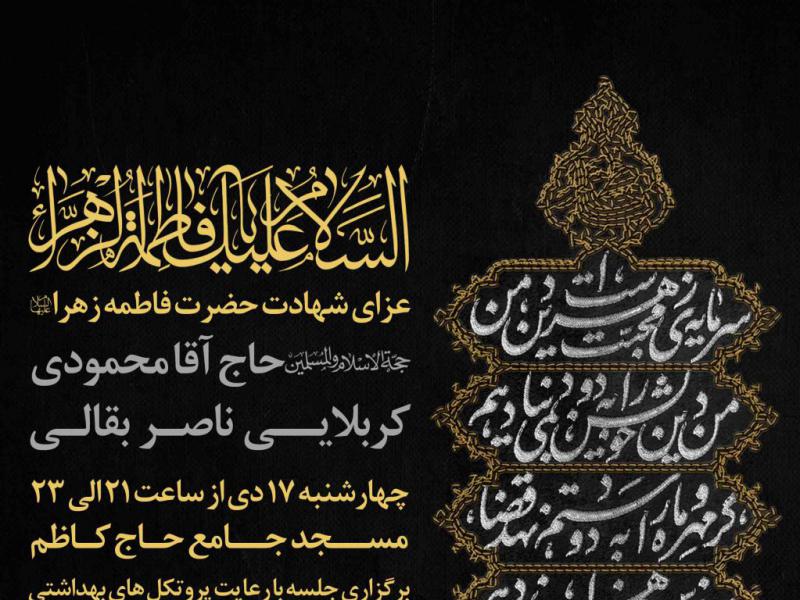 السلام علیک یا فاطمة الزهراء
عزای شهادت حضرت فاطمه زهرا
حجة الاسلام والمسلمین حاج آقا محمودی
کربلایی ناصر بقالی
چهارشنبه ۱۷ دی از ساعت ۲۱ الی ۲۳
مسجد جامع حاج کاظم
برگزاری جلسه با رعایت پروتکل های بهداشتی
سرمایه‌ی محبت زهراست دین من
من دین خویش را به دو دنیا نمی دهم
گر مهر و ماه را به دو دستم نهد قضا